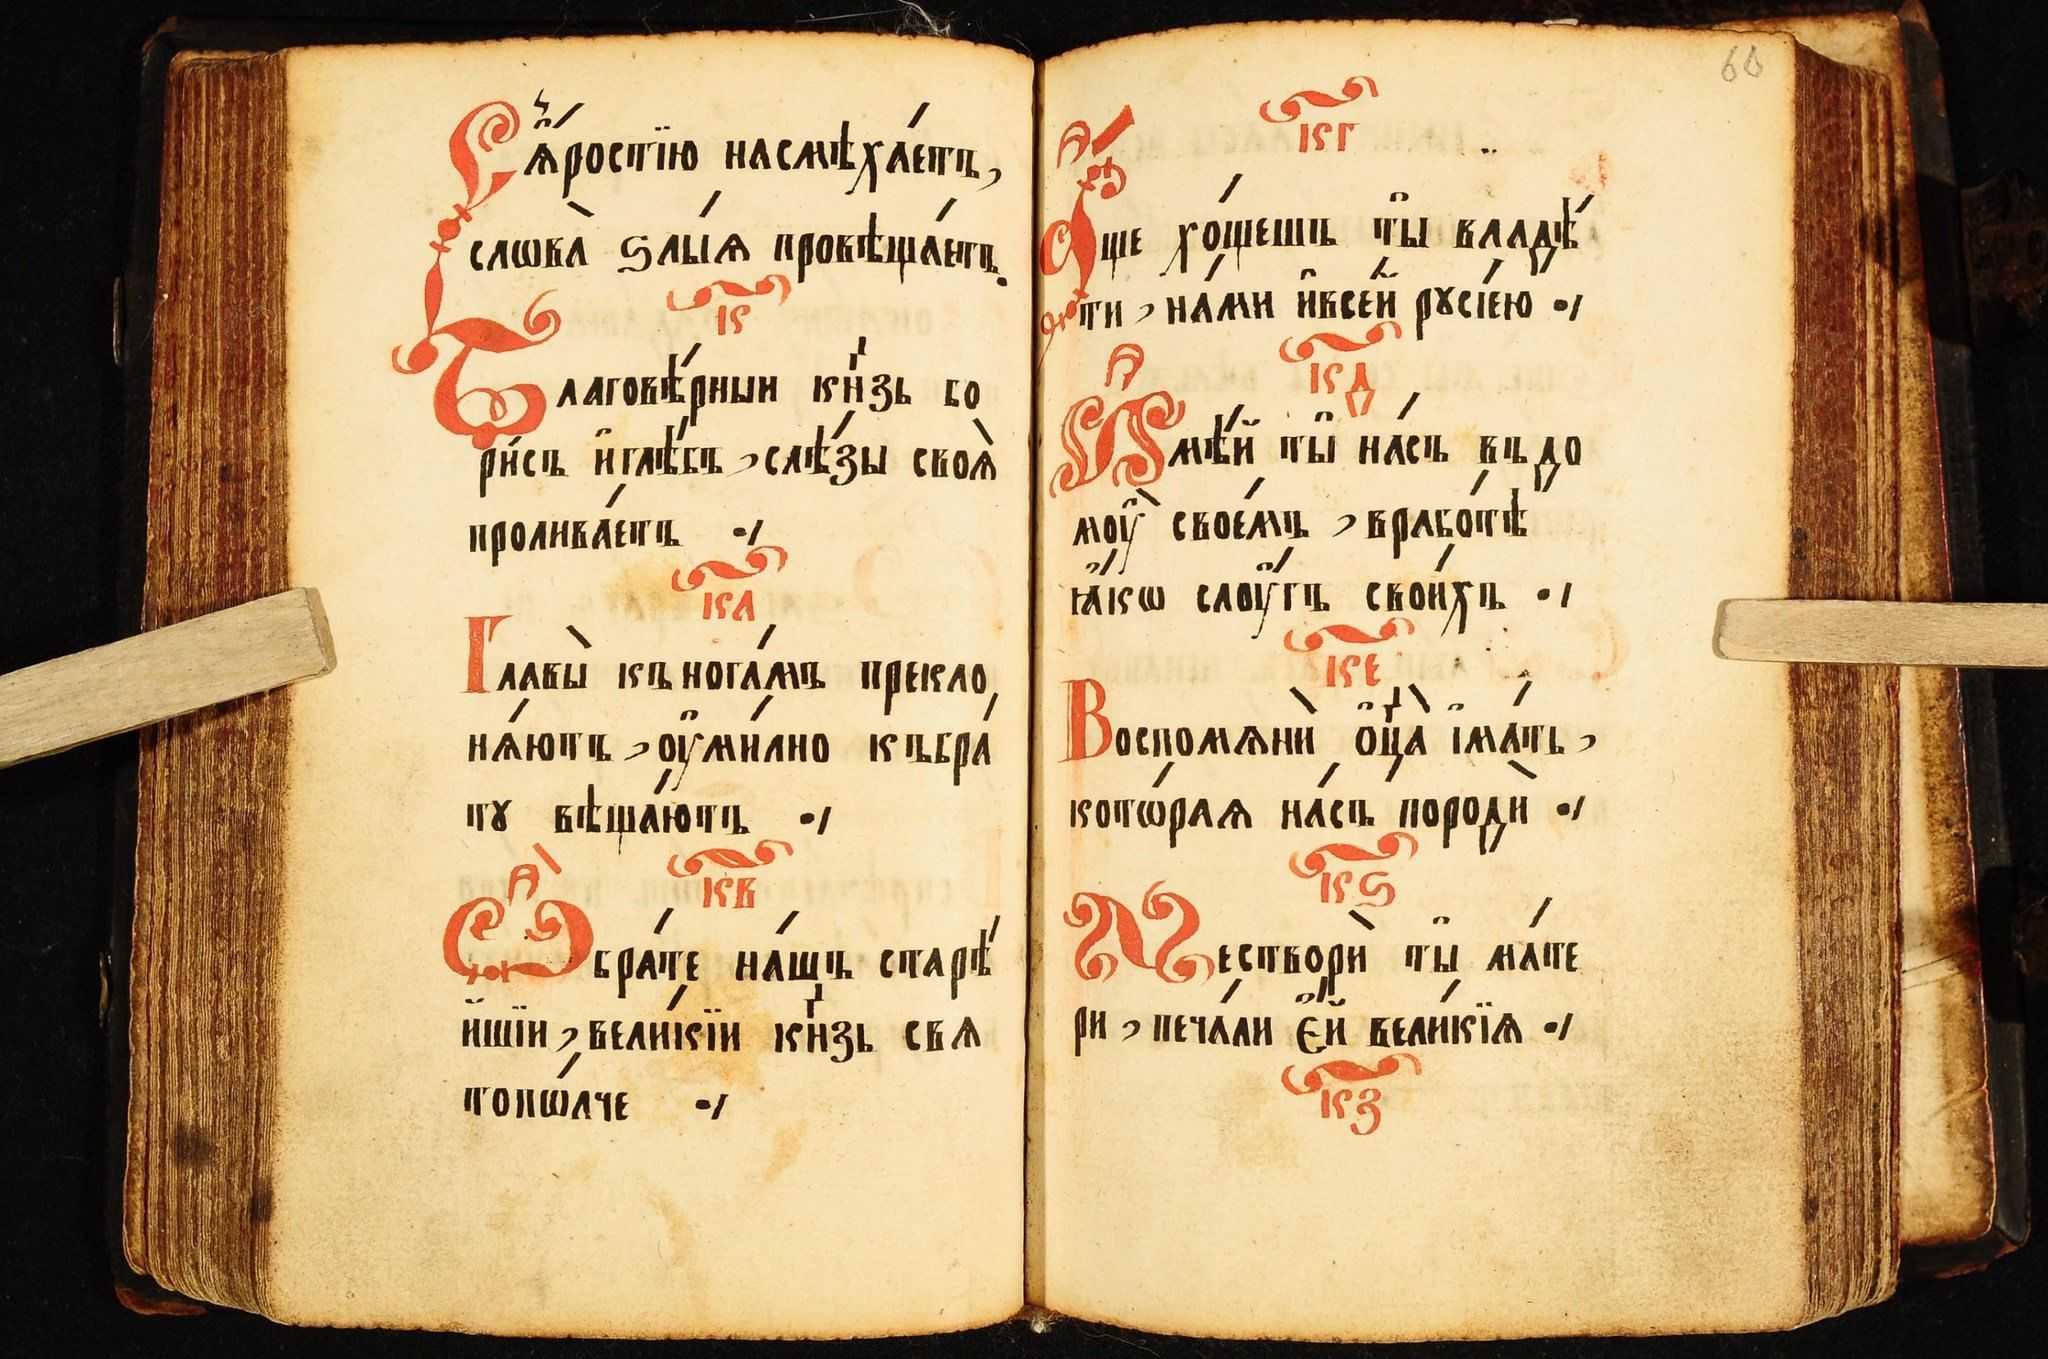 С꙽ ꙗ҆́ростїю насмѣха́етъ,
слѡва̀ ѕлы́ѧ провѣща́етъ.
к҃
Благовѣ́рныи кн҃зь бо
ри́съ и҆глѣ́бъ, сле́зы своѧ̀
пролива́етъ ·/
к҃а
Главы̀ къ нога́мъ прекло,
нѧ́ютъ, оу҆ми́лно къбра́
ту вѣща́ютъ ·/
к҃в
Ѽ бра́те на́шъ старѣ́
йшїи, вели́кїи кн҃зь свѧ
топо́лче ·/
66
к҃г
А҆́ще хо́щешъ ты̑ владѣ́
ти, на́ми и҆всей рꙋсі́ею ·/
к҃д
И҆мѣ́й ты̑ на́съ въ до
моу̀ свое́мъ, врабо́тѣ
ꙗ҆́кѡ слоу́гъ свои́хъ ·/
к҃е
Воспомѧнѝ о҆ц҃а̀ і҆ма́ть,
котѡ́раѧ на́съ породѝ ·/
к҃ѕ
Несотворѝ ты̑ ма́те
ри, печа́ли є҆́й вели́кїѧ ·/
к҃з